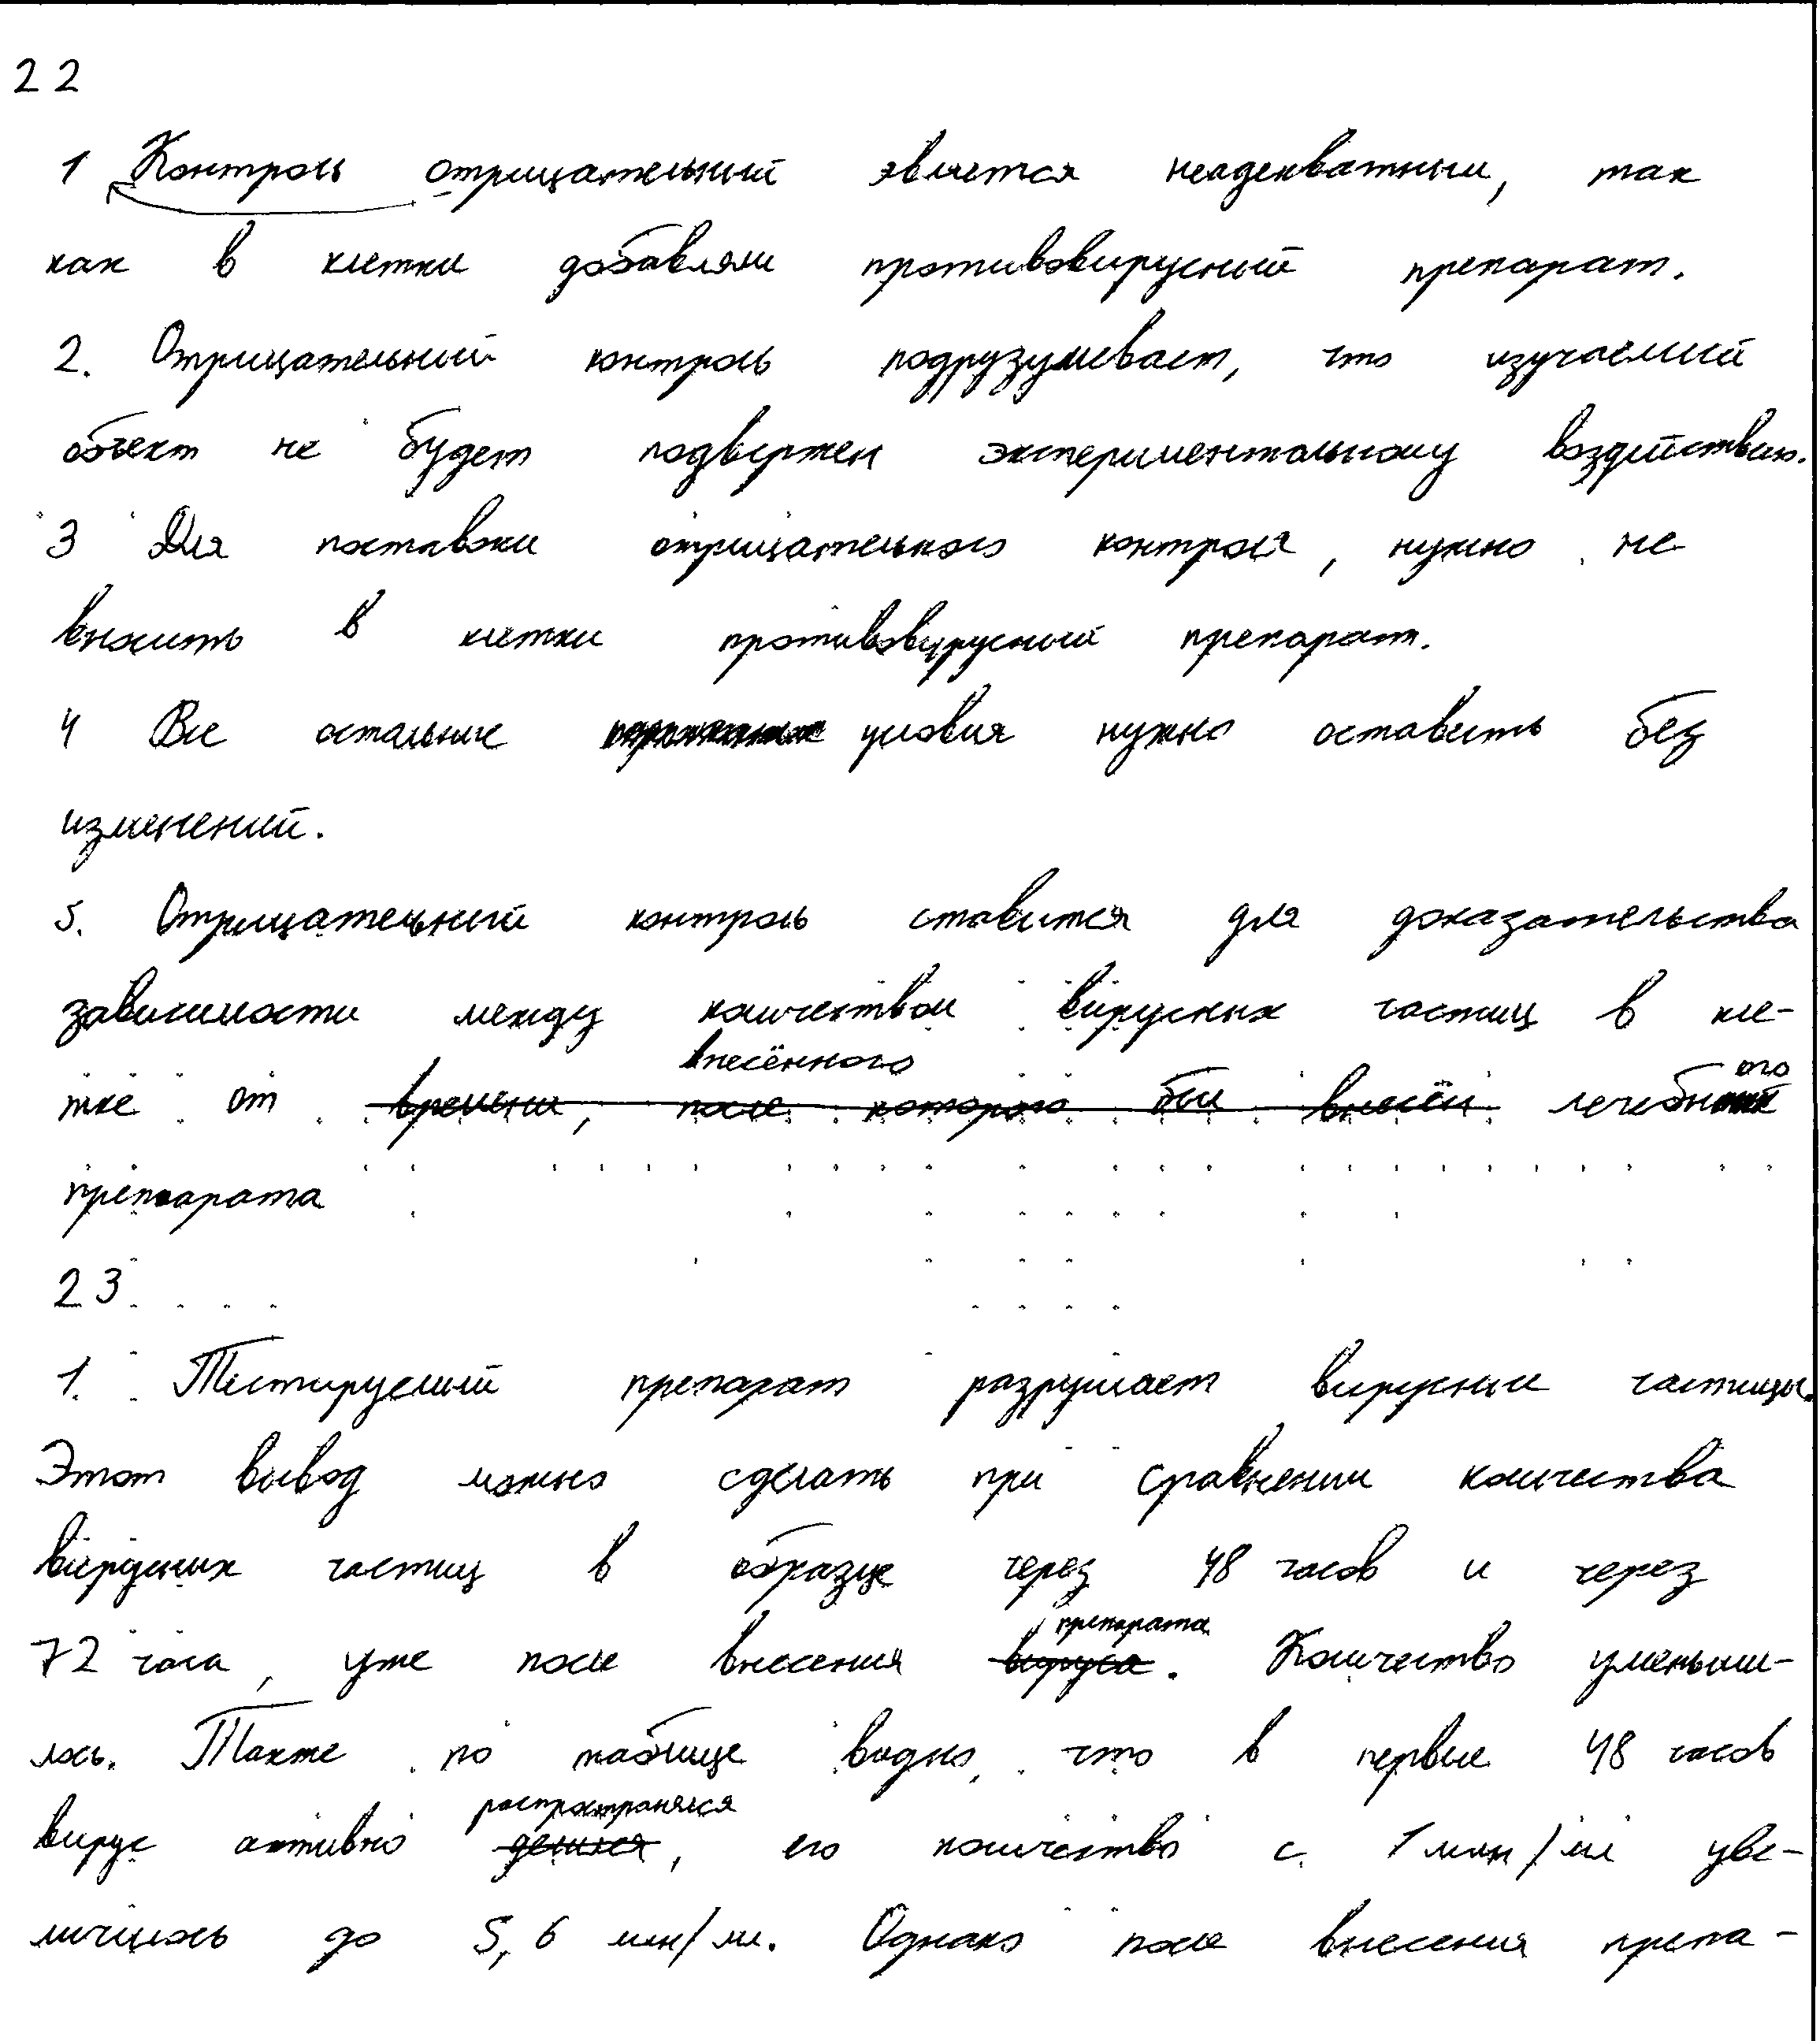 22
1 Контроль отрицательный является неадекватным, так
как в клетки добавляли противовирусный препарат.
2. Отрицательный контроль подрузумевает, что изучаемый
объект не будет подвержен экспериментальному воздействию.
3 Для поставки отрицательного контроля, нужно не
вносить в клетки противовирусный препарат.
4 Все остальные условия нужно оставить без
изменений.
5. Отрицательный контроль ставится для доказательства
зависимости между количеством вирусных частиц в кле-
внесённого
тке от времени, после которого был внесён лечебного
препарата
23
1. Тестируемый препарат разрушает вирусные частицы.
Этот вывод можно сделать при сравнении количества
вирусных частиц в образце через 48 часов и через
препарата
72 часа, уже после внесения вируса. Количество уменьши-
лось. Также по таблице видно, что в первые 48 часов
распространялся
вирус активно делился, его количество с 1 млн/мл уве-
личилось до 5,6 млн/мл. Однако после внесения препа-